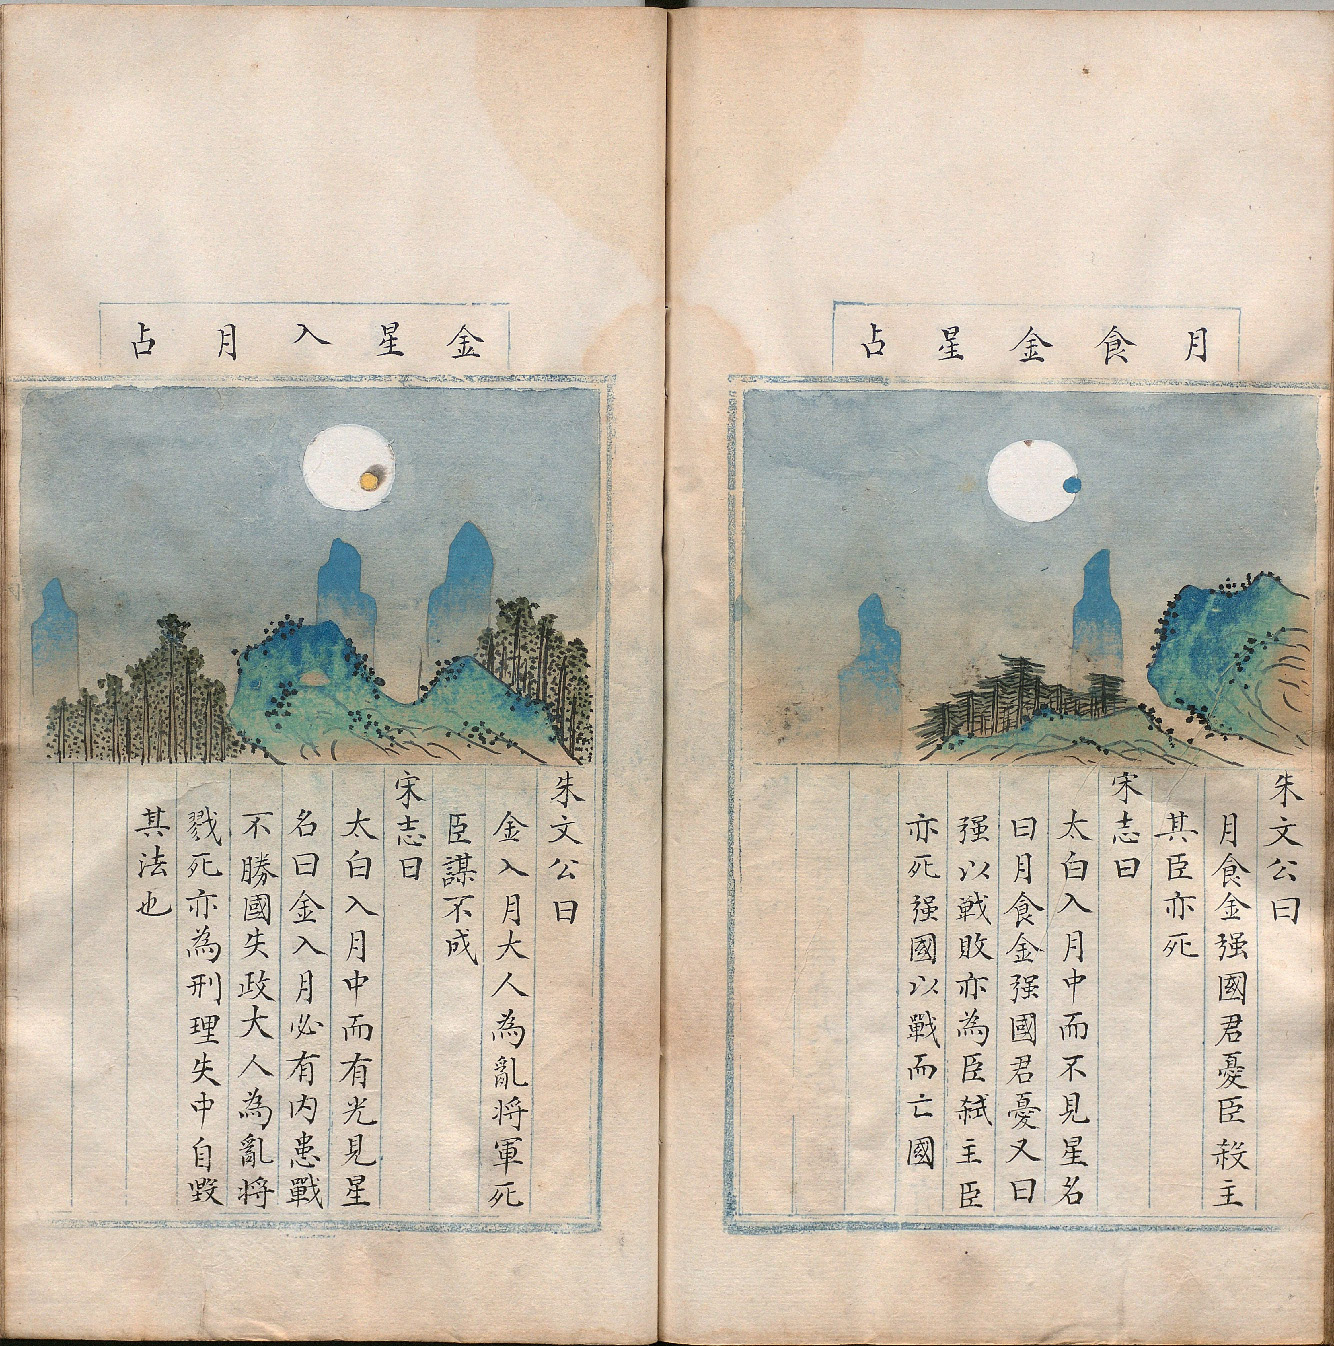 月食金星占
朱文公曰
月食金强國君憂臣殺主
其臣亦死
宋志曰
太白入月中而不見星名
曰月食金强國君憂又曰
强以戦敗亦為臣弑主臣
亦死强國以戰而亡國
金星入月占
朱文公曰
金入月大人為亂将軍死
臣謀不成
宋志曰
太白入月中而有光見星
名曰金入月必有内患戰
不勝國失政大人為亂将
戮死亦為刑理失中自毀
其法也